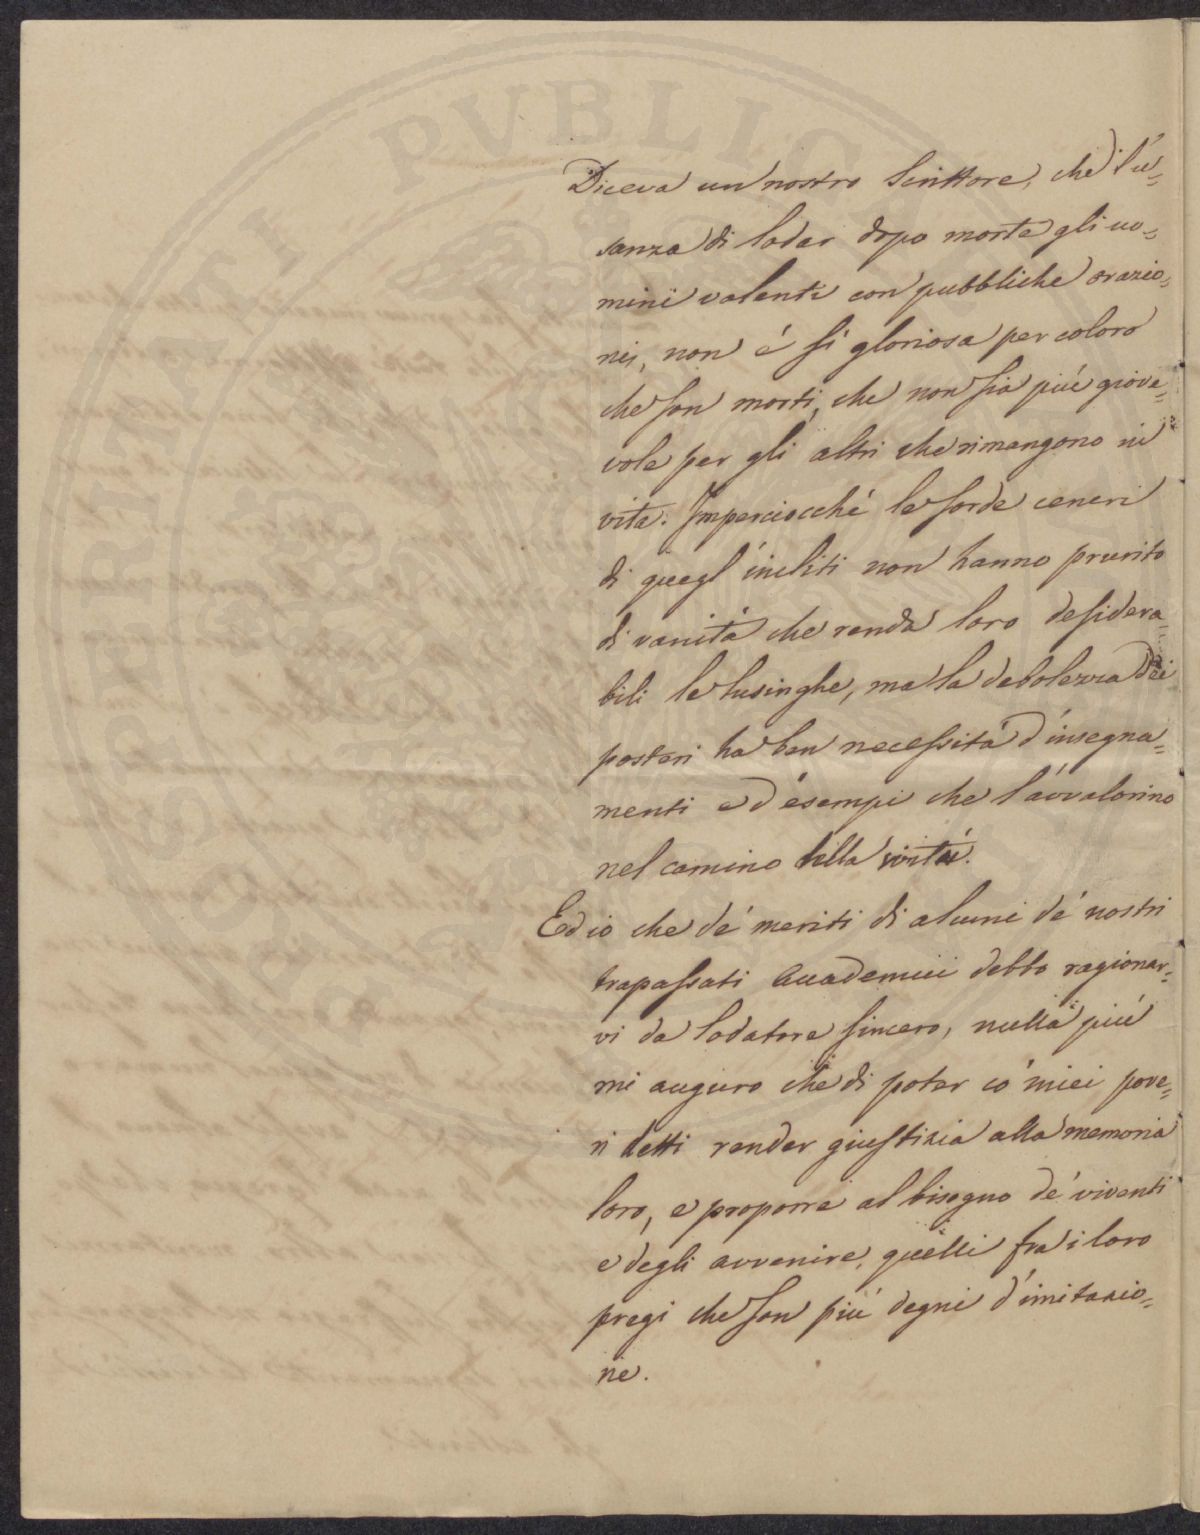 Diceva un nostro Scrittore, che l'u=
sanza di lodar dopo morte gli uo=
mini valenti con pubbliche orazio=
ni, non è sì gloriosa per coloro
che son morti, che non sia più giove=
vole per gli altri che rimangono in
vita. Imperciocché le sorde ceneri
di quegl'incliti non hanno prurito
di vanità che renda loro desidera=
bili le lusinghe, ma la debolezza dei
posteri ha ben necessità d'insegna=
menti e d'esempi che l'avvalorino
nel camino della virtù.
Ed io che de' meriti di alcuni de' nostri
trapassati Accademici debbo ragionar=
vi da lodatore sincero, nulla più
mi auguro che di poter co' miei pove=
ri detti render giustizia alla memoria
loro, e proporre al bisogno de' viventi
e degli avvenire, quelli fra i loro
pregi che son più degni d'imitazio=
ne.